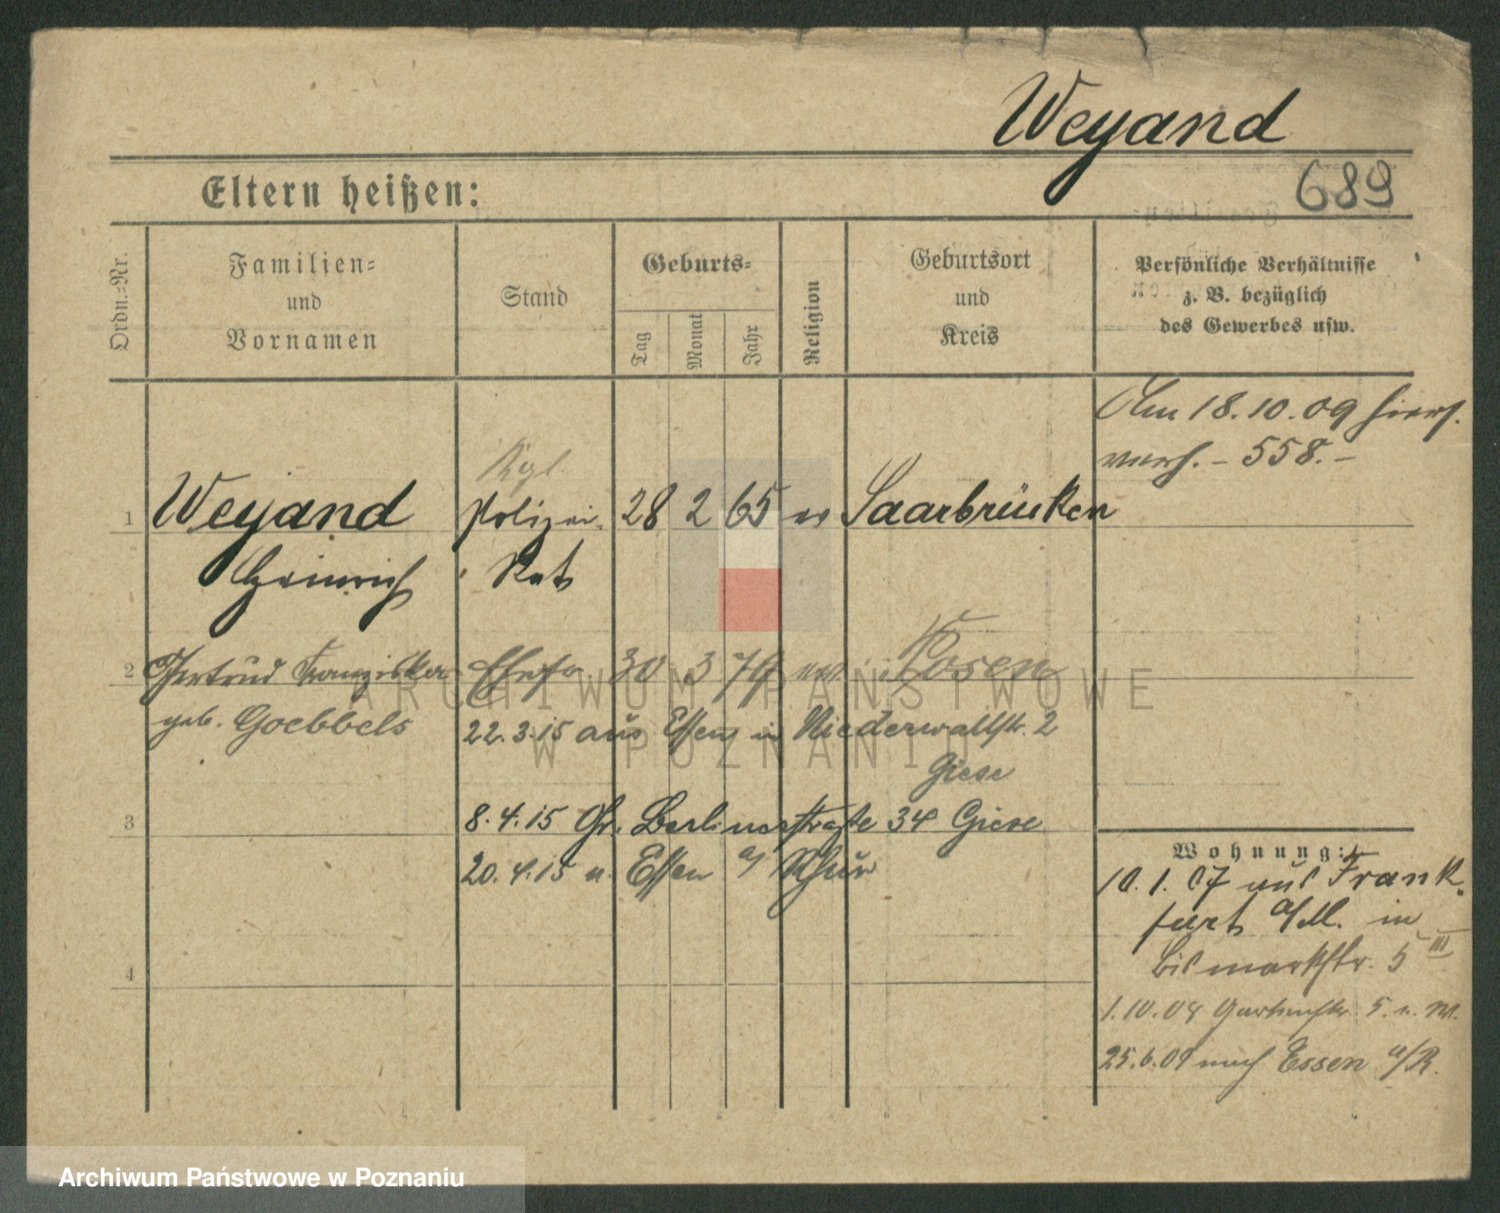 Weyand
689
Eltern heißen:
Ordn.-Nr.
Familien-
und
Vornamen
Stand
Geburts-
Tag
Monat
Jahr
Religion
Geburtsort
und
Kreis
Persönliche Verhältnisse
z. B. bezüglich
des Gewerbes usw.
Am 18.10.09 hiers.
verh. – 558. –
Kgl.
1 Weyand Polizei- 28 2 65 ev Saarbrücken
Heinrich Rat
2 Gertrud Franziska Ehefr 30 3 79 Posen
geb. Goebbels
22.3.15 aus Essen in Niederwallstr. 2
Giese
3 8.4.15 Gr. Berlinerstraße 34 Giese
20.4.15 n. Essen a/ Rhur
4
Wohnung:
10.1.07 aus Frank-
furt a/M. in
Bismarkstr. 5 III
1.10.08 Gartenstr. 5
25.6.09 nach Essen a/R.
ARCHIWUM PAŃSTWOWE
W POZNANIU
Archiwum Państwowe w Poznaniu